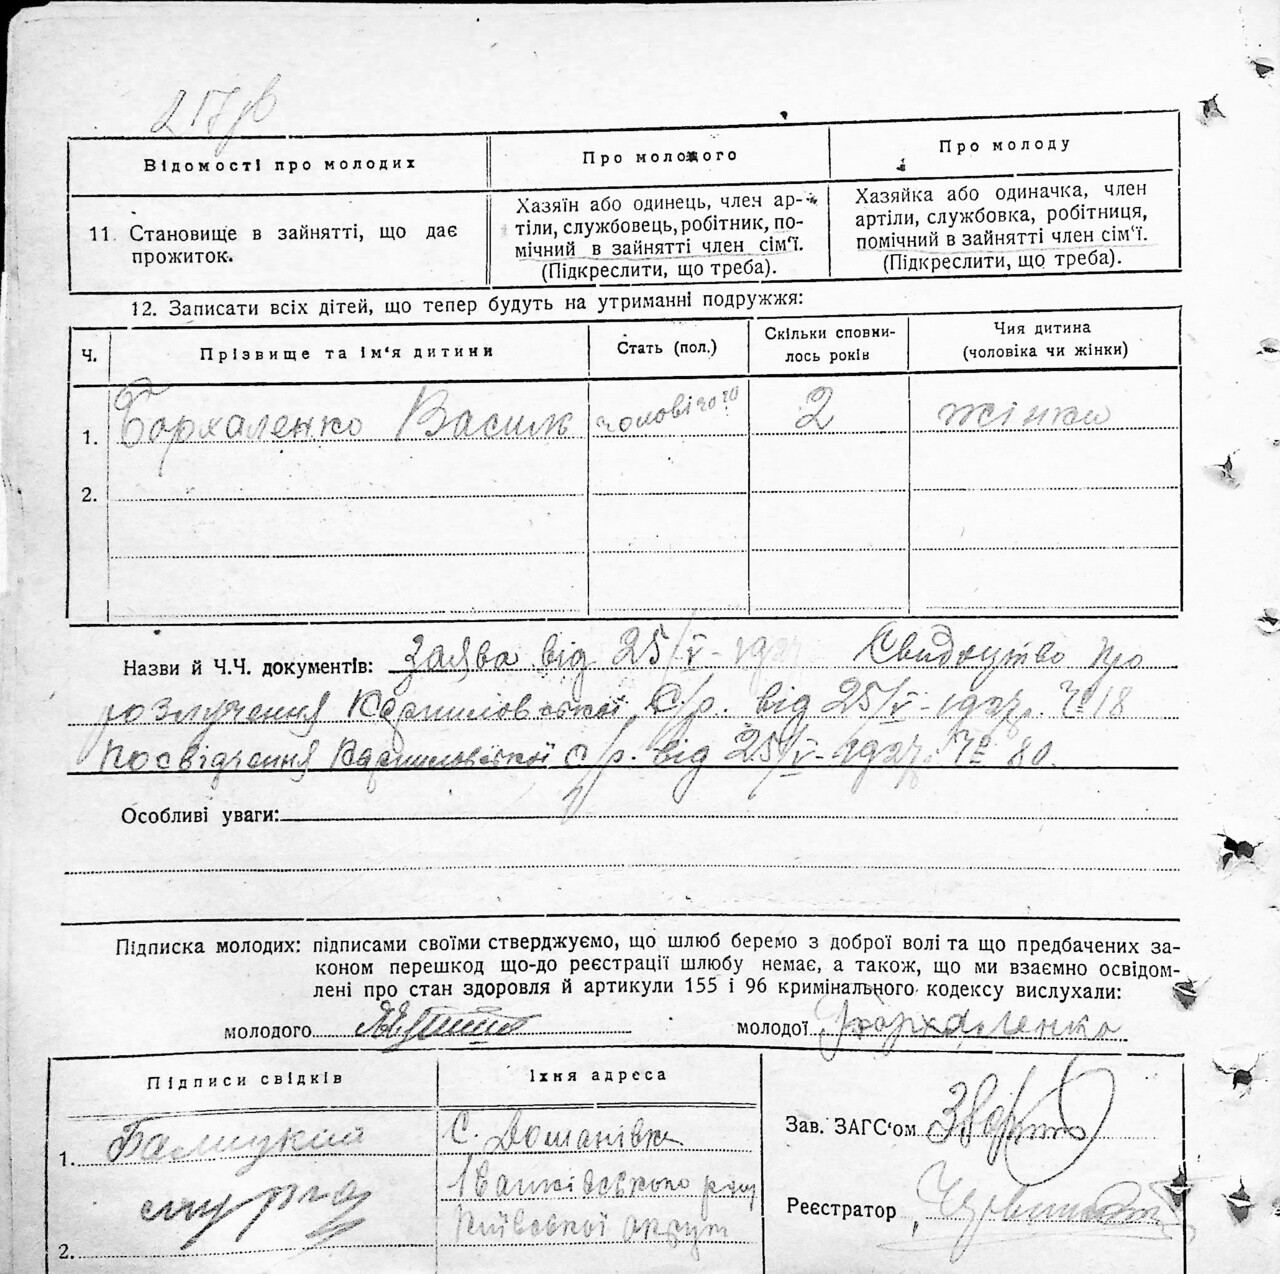 217зв
Відомості про молодих
Про молодого
Про молоду
11. Становище в зайнятті, що дає
прожиток.
Хазяїн або одинець, член ар-
тіли, службовець, робітник, по-
мічний в зайнятті член сім'ї.
(Підкреслити, що треба).
Хазяйка або одиначка, член
артіли, службовка, робітниця,
помічний в зайнятті член сім'ї.
(Підкреслити, що треба).
12. Записати всіх дітей, що тепер будуть на утриманні подружжя:
Ч.
Прізвище та ім'я дитини
Стать (пол.)
Скільки сповни-
лось років
Чия дитина
(чоловіка чи жінки)
1. Бархаленко Василь чоловічого 2 жінки
2.
Назви й Ч.Ч. документів: Заява від 25/V-1927 Свидоцтво про
розлучення Карпиловської С/р. від 25/V-1927р. № 18
посвідчення Карпиловської с/р. від 25/V-1927р. № 80.
Особливі уваги:
Підписка молодих: підписами своїми стверджуємо, що шлюб беремо з доброї волі та що предбачених за-
коном перешкод що-до реєстрації шлюбу немає, а також, що ми взаємно освідом-
лені про стан здоровля й артикули 155 і 96 кримінального кодексу вислухали:
молодого
молодої Бархаленко
Підписи свідків
Їхня адреса
1. Балицкий
2.
С.
Іванківського рай
Київської округи
Зав. ЗАГС'ом
Реєстратор